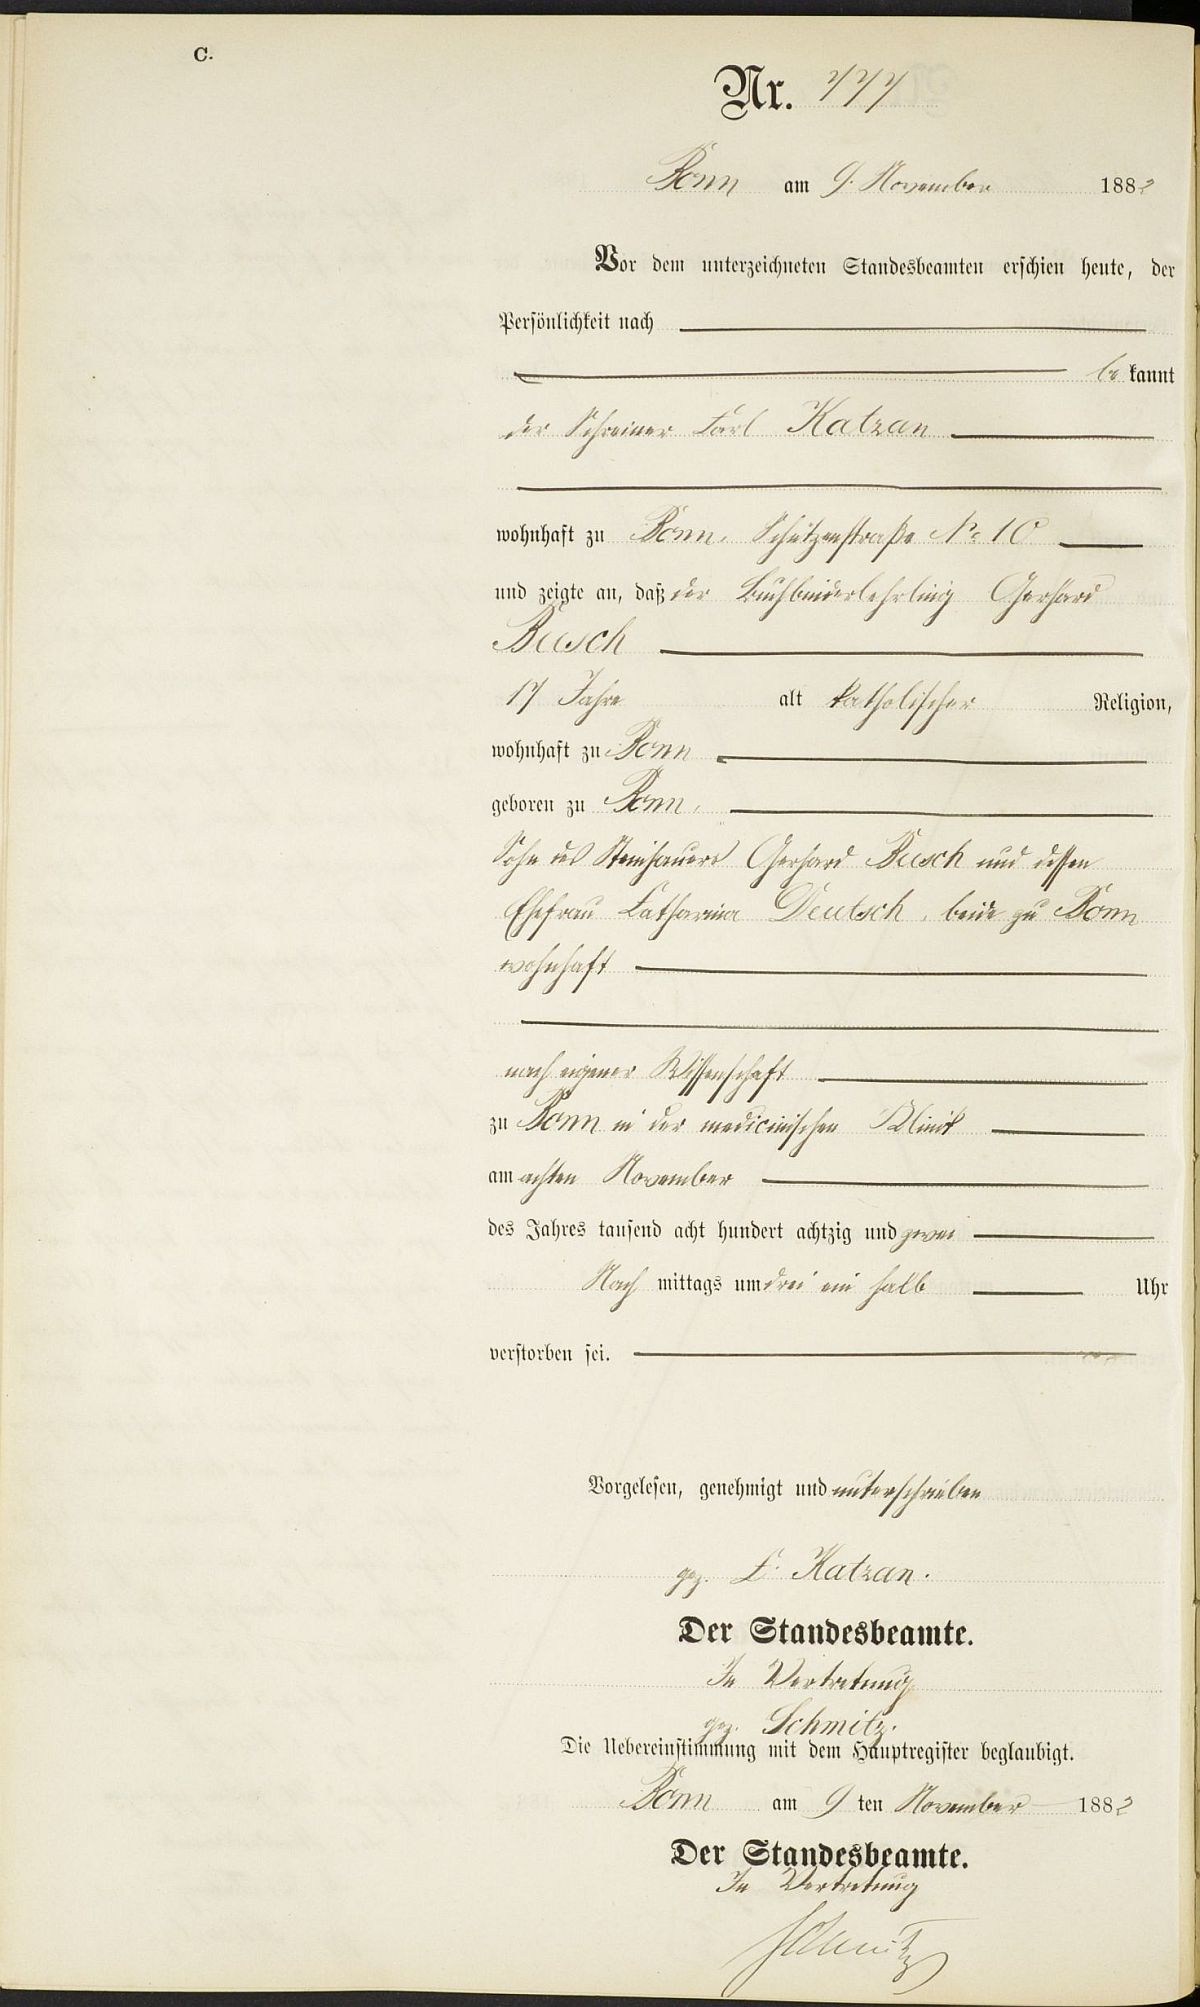 C.
Nr. 777
Bonn am 9. November 1882
Vor dem unterzeichneten Standesbeamten erschien heute, der
Persönlichkeit nach
be kannt
der Schreiner Carl Katzan
wohnhaft zu Bonn, Schützenstraße No 10
und zeigte an, daß der Buchbinderlehrling Gerhard
Busch
17 Jahre alt katholischer Religion,
wohnhaft zu Bonn
geboren zu Bonn,
Sohn des Steinhauers Gerhard Busch und dessen
Ehefrau Catharina Deutsch, beide zu Bonn
wohnhaft
nach eigener Wissenschaft
zu Bonn in der medicinischen Klinik
am achten November
des Jahres tausend acht hundert achtzig und zwei
Nach mittags um drei ein halb Uhr
verstorben sei.
Vorgelesen, genehmigt und unterschrieben
gez. C. Katzan.
Der Standesbeamte.
In Vertretung
gez. Schmitz.
Die Uebereinstimmung mit dem Hauptregister beglaubigt.
Bonn am 9 ten November 1882
Der Standesbeamte.
In Vertretung
Schmitz